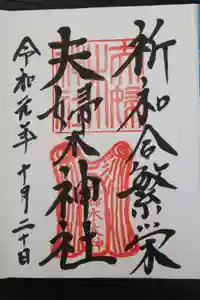 祈和合繁栄
夫婦木神社
令和元年十月二十日